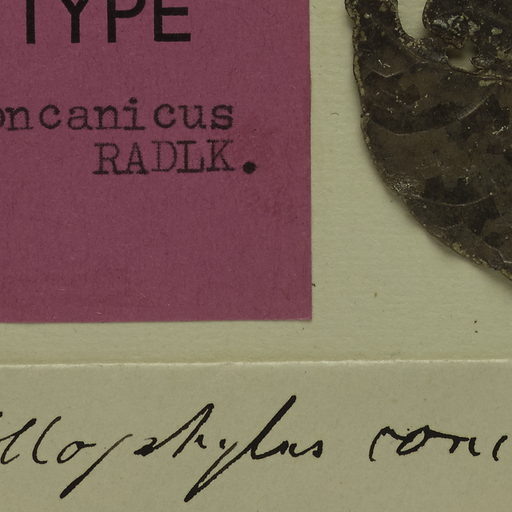 TYPE
oncanicus
RADLK.
llophylus conc